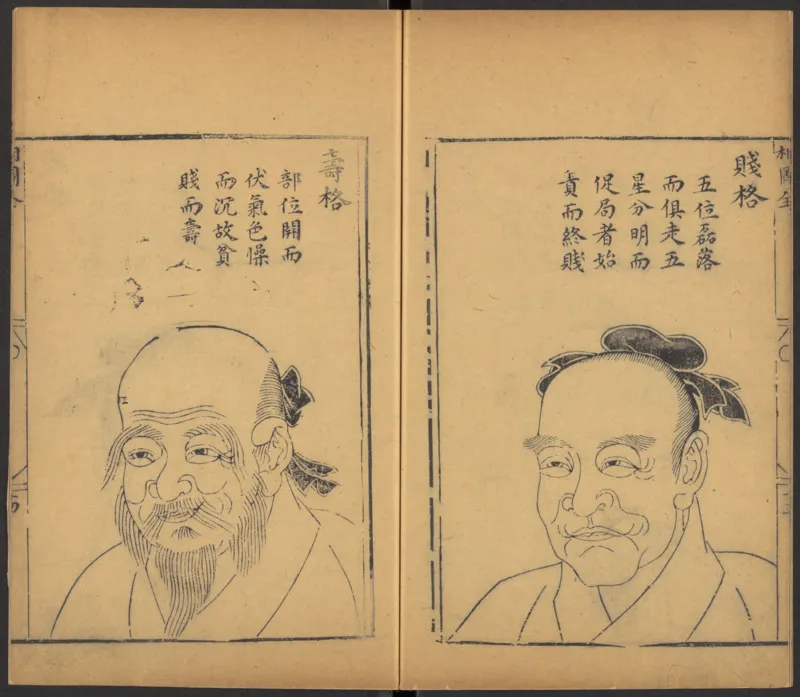 賤格
五位磊落
而俱走五
星分明而
促局者始
責而終賤
壽格
部位開而
伏氣色懆
而沉故貧
賤而壽